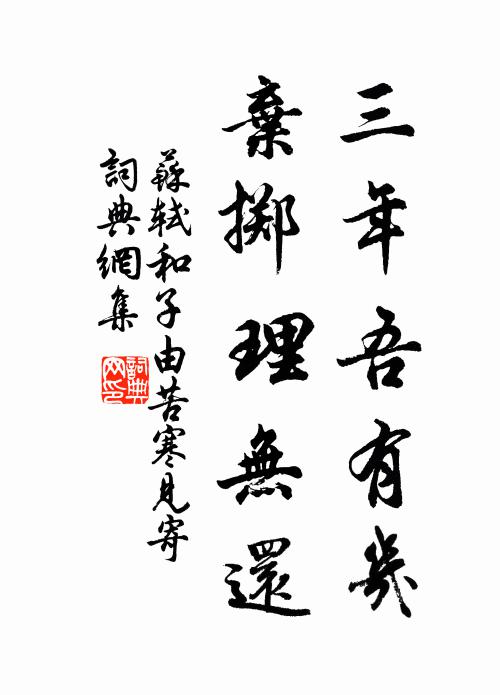 三年吾有幾
棄擲理無還
蘇軾和子由苦寒見寄
詞典網集
詞典
网印